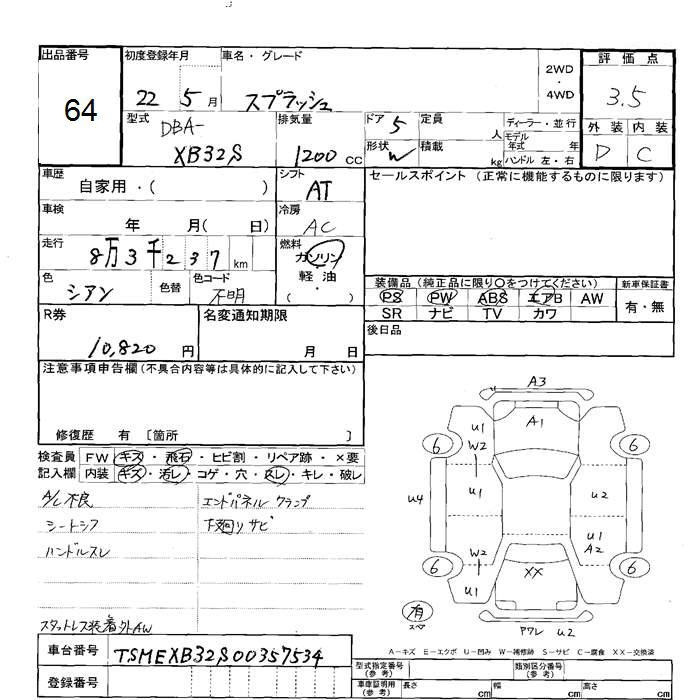 出品番号
64
初度登録年月
22 5 月
車名・グレード
スプラッシュ
2WD
・
4WD
評価点
3.5
外装 内装
D C
型式
DBA-
XB32S
排気量
1200 cc
ドア 5
形状 W
定員 人
積載 kg
ディーラー・並行
モデル
年式 年
ハンドル 左・右
車歴
自家用・( )
シフト
AT
セールスポイント (正常に機能するものに限ります)
車検
年 月( 日)
冷房
AC
走行
8万3千237 km
燃料
ガソリン
軽・油
・
( )
色
シアン
色替
色コード
不明
装備品 (純正品に限り○をつけてください)
PS PW ABS エアB AW
SR ナビ TV カワ
新車保証書
有・無
R券
10,820 円
名変通知期限
月 日
後日品
注意事項申告欄 (不具合内容等は具体的に記入して下さい)
修復歴 有 〔箇所 〕
検査員
記入欄
FW キズ・飛石・ヒビ割・リペア跡・×要
内装 キズ・汚レ・コゲ・穴・スレ・キレ・破レ
A/C不良
シートシワ
ハンドルスレ
スタットレス装着 外AW
エンドパネル クランプ
下廻りサビ
A3
A1
U1
W2
U1
U4
W2
U1
U1
U2
U1
A2
XX
6
6
6
6
有
スペア
Pワレ U2
A-キズ E-エクボ U-凹み W-補修跡 S-サビ C-腐食 XX-交換済
車台番号
TSMEXB32S00357534
登録番号
型式指定番号
(参考)
類別区分番号
(参考)
車庫証明用
(参考)
長さ cm
幅 cm
高さ cm